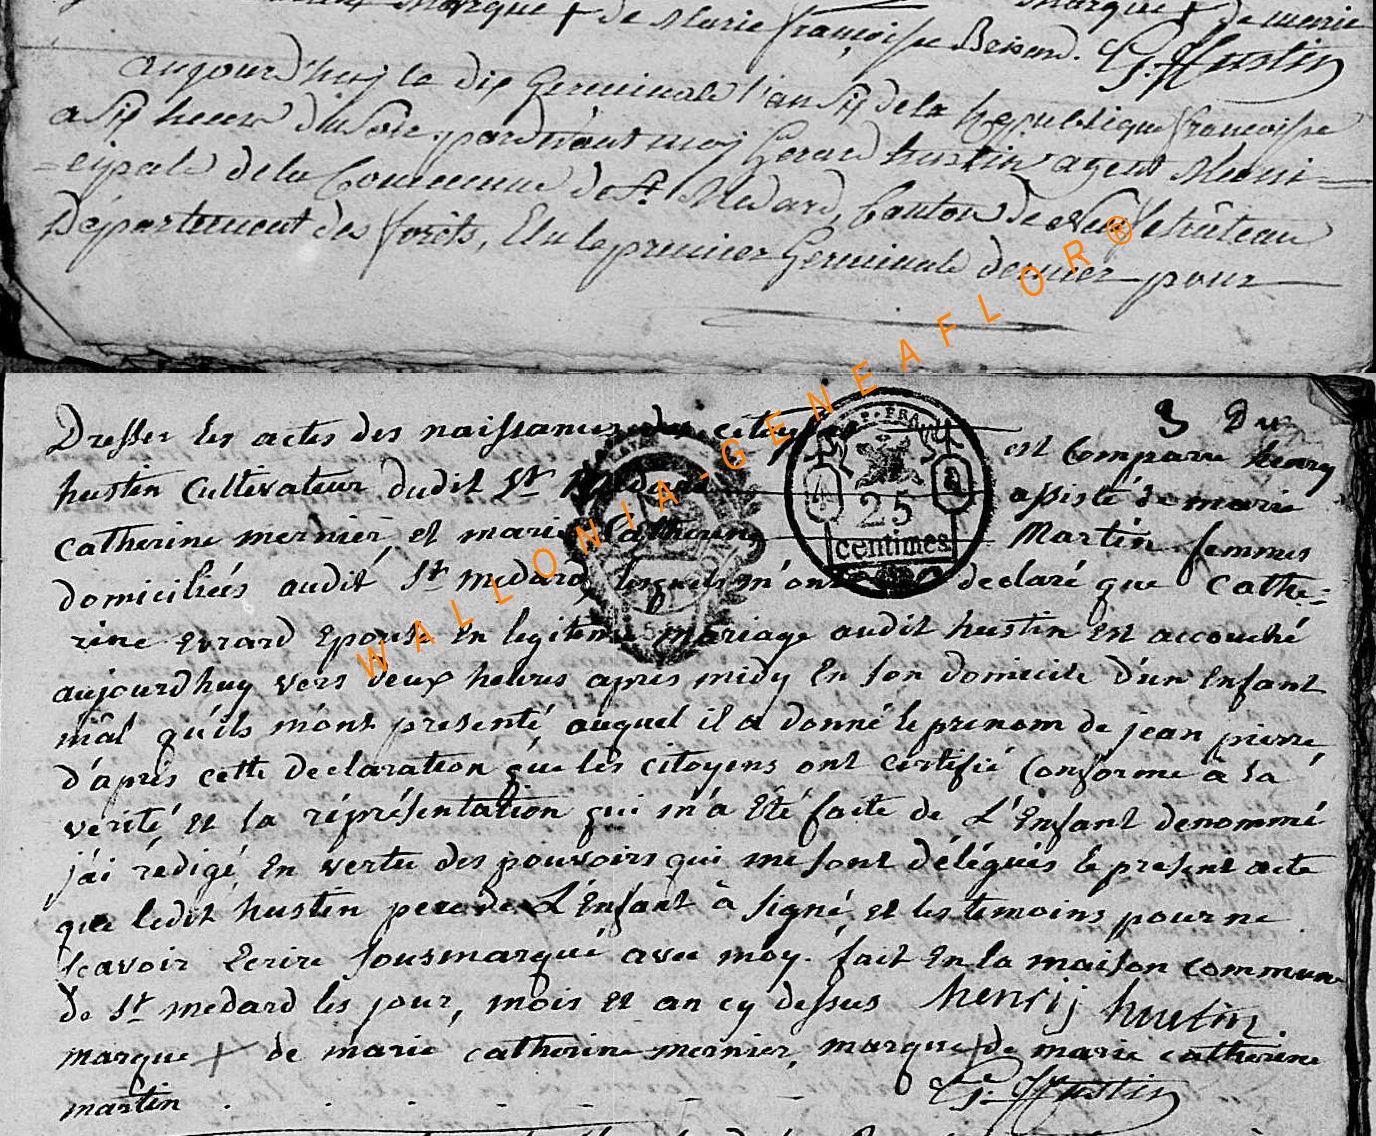 marque + de Marie françoise
marque + de marie
G. Hustin
aujourd'huy le dix Germinale l'an six de la Republique françoisse
a six heure du Soir pardevant moy Gerard hustin agent Muni=
=cipale de la Commune de St. Medard, Canton de Neufchâteau
Département des forêts, Elu le premier Germinale dernier pour
3
Dresser les actes des naissances des citoyens est comparu henry
hustin Cultivateur dudit St Medard assisté de marie
catherine mernier, et marie Catherine Martin femmes
domiciliées audit St medard, lesquels m'ont declaré que Cathe=
rine evrard Epouse En legitime mariage audit hustin Est accouché
aujourdhuy vers deux heures apres midy En son domicile d'un Enfant
mâl qu'ils m'ont presenté, auquel il a donné le prenom de jean pierre,
d'apres cette declaration que les citoyens ont certifié Conforme à la
verité et la répréséntation qui m'a Eté faite de L'Enfant denommé
j'ai rédigé En vertu des pouvoirs qui me sont délégués le present acte
que ledit hustin pere de L'Enfant à signé, et les temoins pour ne
scavoir Ecrire sousmarqué avec moy. fait En la maison commune
de St medard les jour, mois et an cy dessus henrij hustin.
marque + de marie catherine mernier, marque + de marie catherine
martin G. Hustin
REP. FRA
25
centimes
WALLONIA-GENEAFLOR®